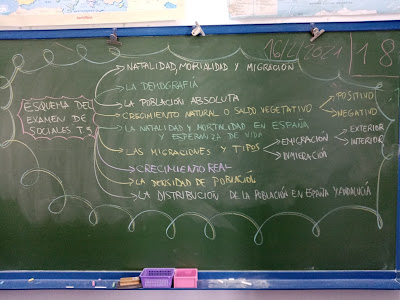 16/2/2021
18
ESQUEMA DEL
EXAMEN DE
SOCIALES T.4
NATALIDAD, MORTALIDAD Y MIGRACIÓN
LA DEMOGRAFÍA
LA POBLACIÓN ABSOLUTA
CRECIMIENTO NATURAL O SALDO VEGETATIVO
POSITIVO
NEGATIVO
LA NATALIDAD Y MORTALIDAD EN ESPAÑA
Y ESPERANZA DE VIDA
LAS MIGRACIONES Y TIPOS
EMIGRACIÓN
INMIGRACIÓN
EXTERIOR
INTERIOR
CRECIMIENTO REAL
LA DENSIDAD DE POBLACIÓN
LA DISTRIBUCIÓN DE LA POBLACIÓN EN ESPAÑA Y ANDALUCÍA